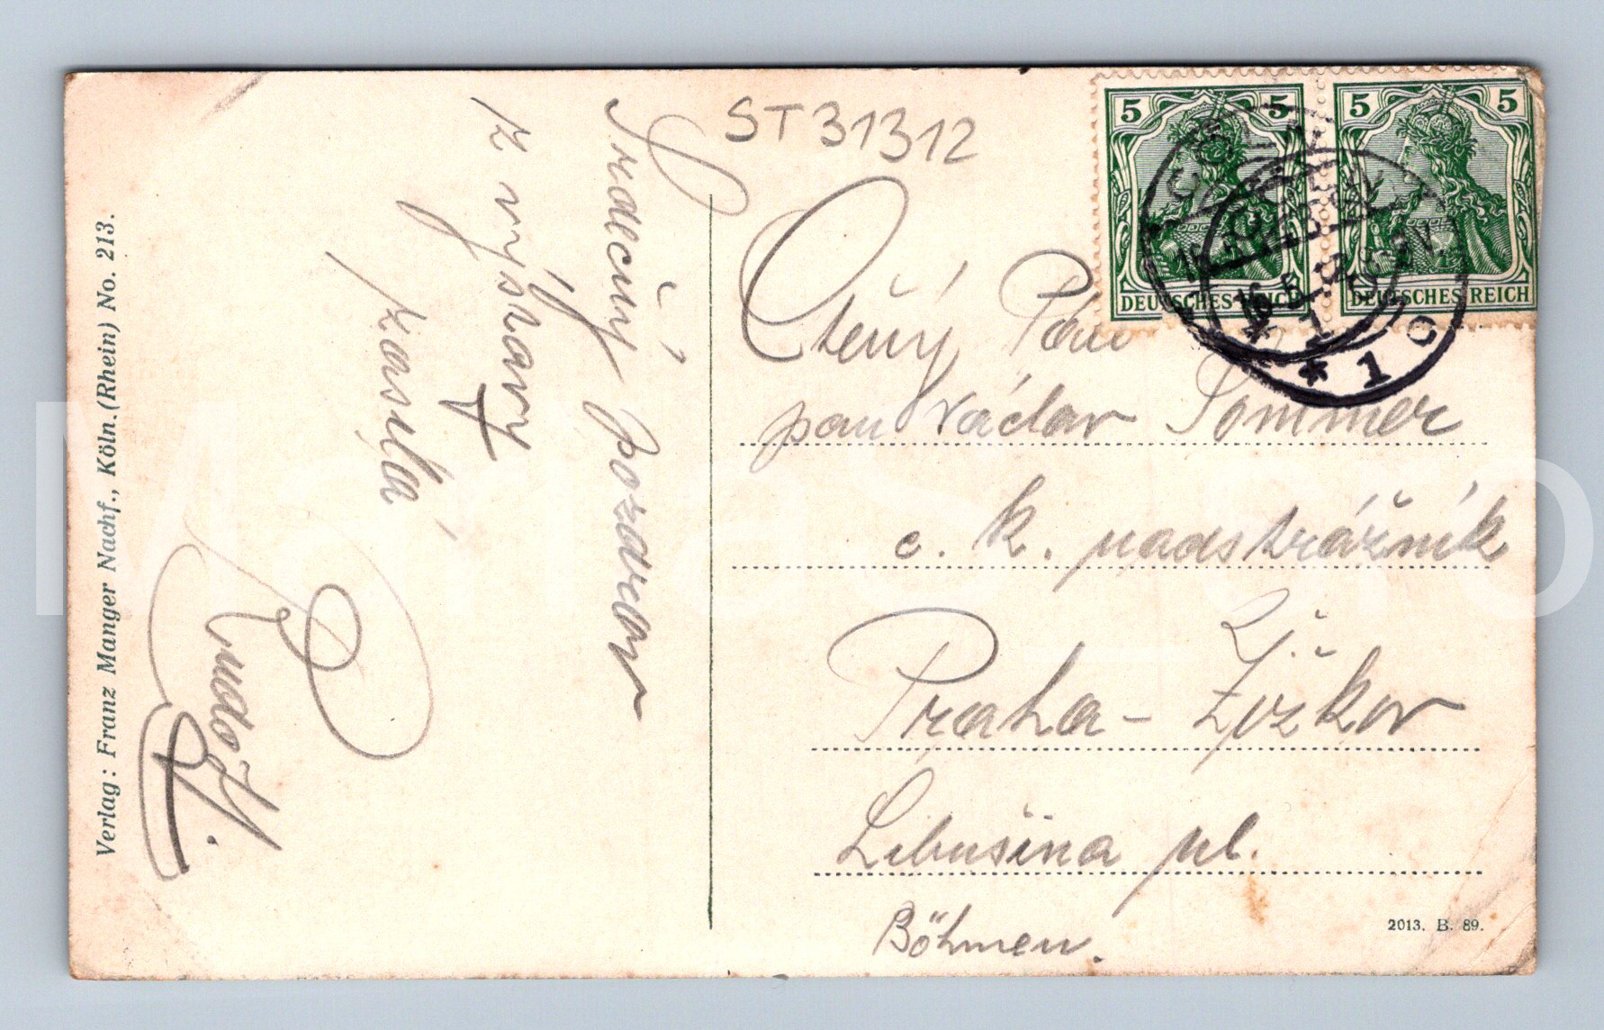 Verlag: Franz Manger Nachf., Köln.(Rhein) No. 213.
Srdečný pozdrav
z výstavy
zasílá
Rudolf.
ST31312
5 5
DEUTSCHES REICH
5 5
DEUTSCHES REICH
* 1 c
Ctěný Pán
pan Václav Sommer
c. k. nadstrážník
Praha - Žižkov
Libušina ul.
Böhmen.
2013. B. 89.